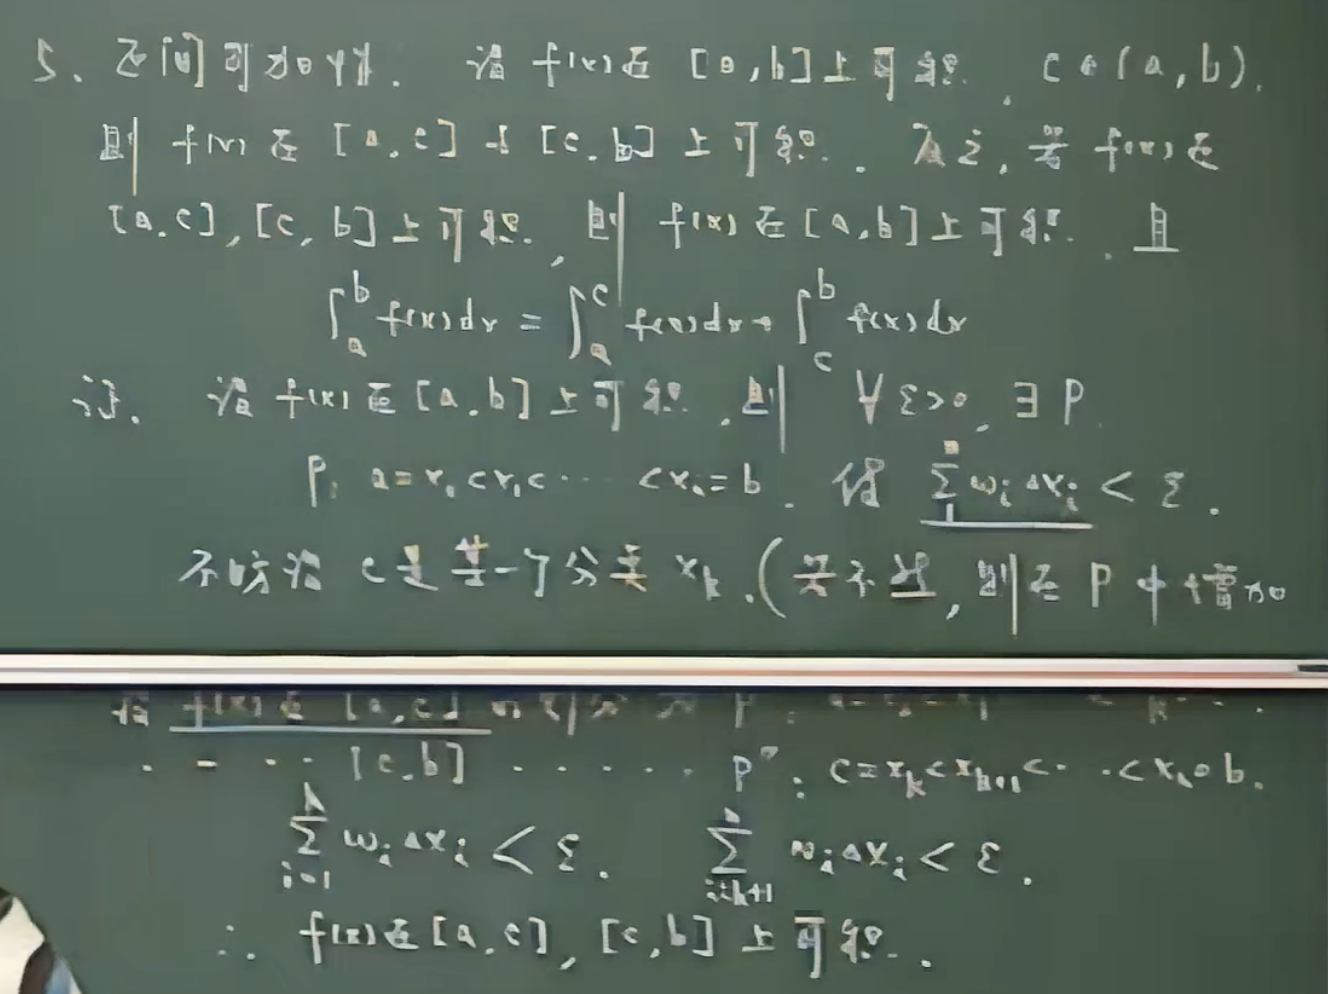 5、区间可加性. 设 f(x) 在 [a,b] 上可积. c∈(a,b).
则 f(x) 在 [a,c] 与 [c,b] 上可积. 反之, 若 f(x) 在
[a,c], [c,b] 上可积, 则 f(x) 在 [a,b] 上可积. 且
∫_a^b f(x)dx = ∫_a^c f(x)dx + ∫_c^b f(x)dx
证. 设 f(x) 在 [a,b] 上可积, 则 ∀ε>0, ∃P.
P: a=x₀<x₁<⋯ <xₙ=b. 使 ∑_1^n ωᵢΔxᵢ < ε.
不妨设 c 是某一个分点 x_k. (若不然, 则在 P 中增加
设 f(x) 在 [a,c] 的划分为 P'
. - . . [c,b] . . . . . P'': c=x_k<x_{k+1}<⋯<xₙ=b.
∑_{i=1}^k ωᵢΔxᵢ < ε. ∑_{i=k+1}^n ωᵢΔxᵢ < ε.
∴ f(x) 在 [a,c], [c,b] 上可积.